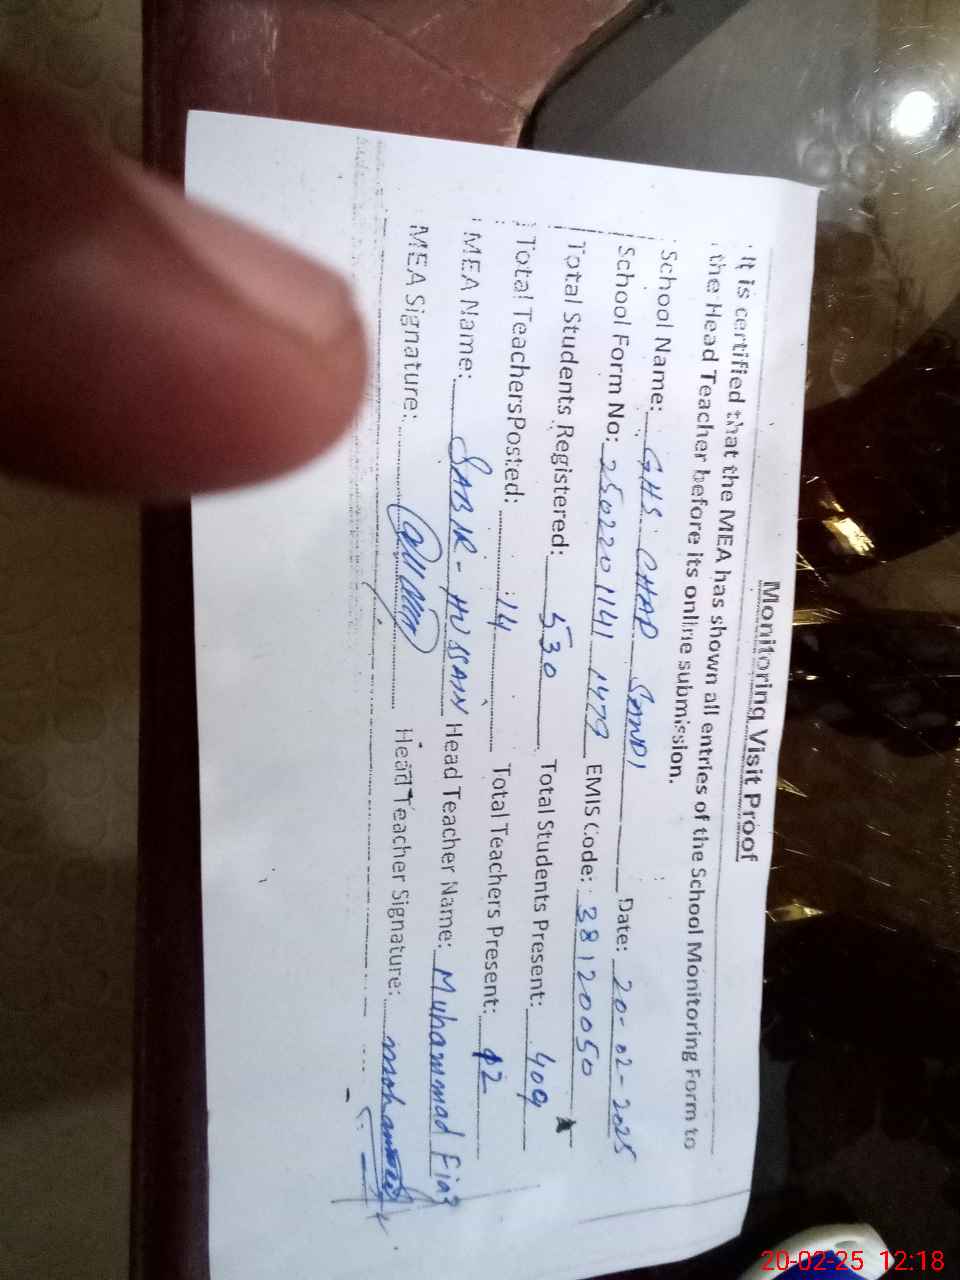 Monitoring Visit Proof
It is certified that the MEA has shown all entries of the School Monitoring Form to
the Head Teacher before its online submission.
School Name: GHS CHAP SANDI Date: 20-02-2025
School Form No: 250220 1141 1479 EMIS Code: 38120050
Total Students Registered: 530 Total Students Present: 409
Total TeachersPosted: 14 Total Teachers Present: 12
MEA Name: SABIR-HUSSAIN Head Teacher Name: Muhammad Fiaz
MEA Signature: Head Teacher Signature:
20-02-25 12:18